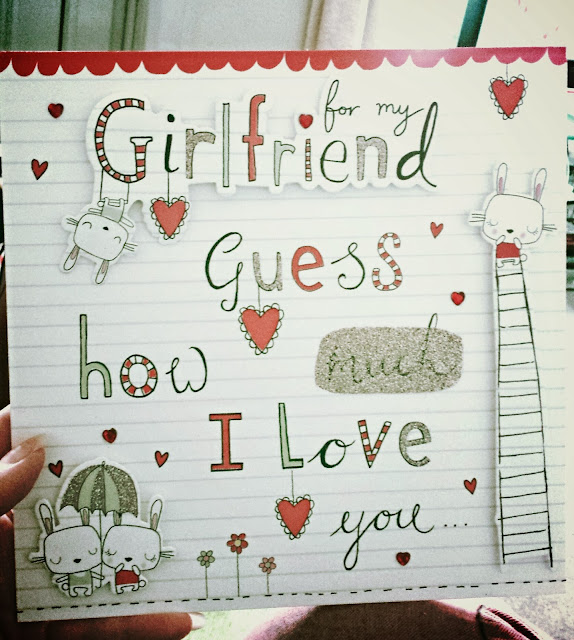 for my
Girlfriend
Guess
how much
I Love
you...